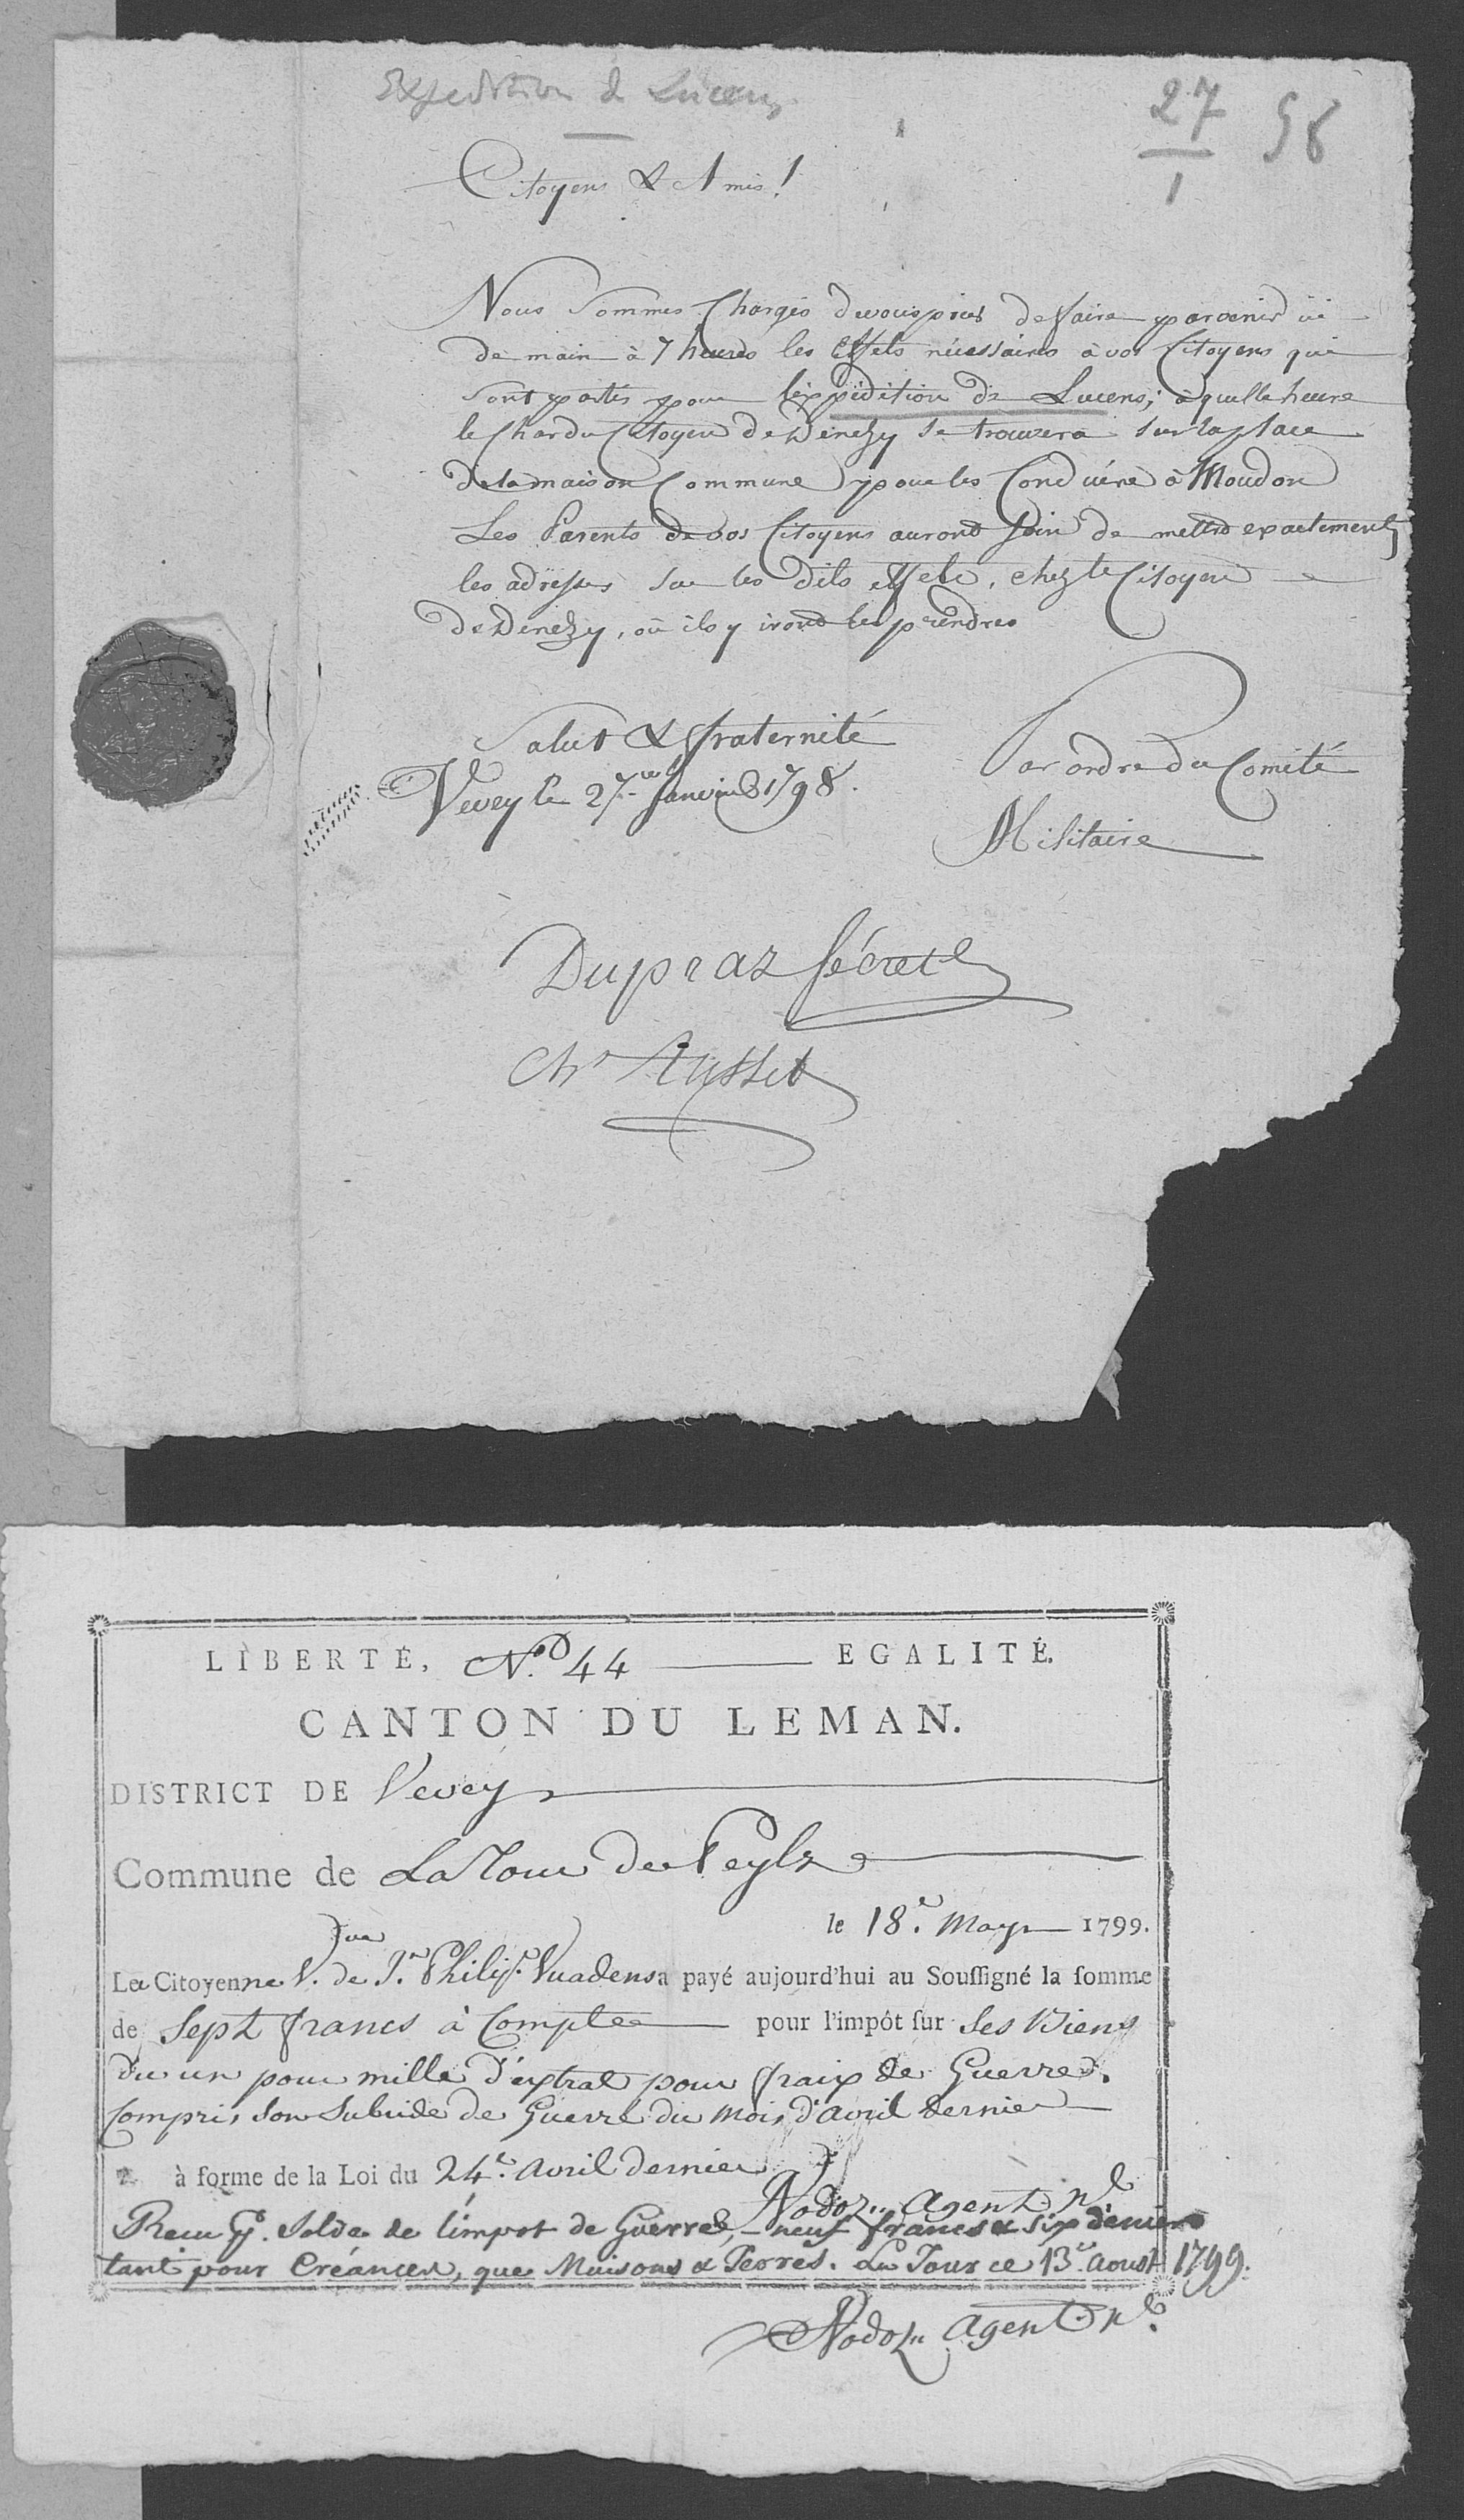 Expedition de Lucens
27 98
1
Citoyens & Amis!
Nous Sommes Chargés de vous prier de faire parvenir ici
demain à 7 heures les Effets nécessaires à vos Citoyens qui
sont partis pour l'expédition de Lucens; à quelle heure
le Char du Citoyen De Dénezy se trouvera sur la place
de la maison Commune pour les Conduire à Moudon
Les Parents de vos Citoyens auront soin de mettre exactement
les adresses sur les dits effets, chez le Citoyen
De Dénezy, où ils y iront les prendres
Salut & fraternité
Vevey le 27me Janvier 1798.
Par ordre du Comité
Militaire
Dupraz Sécret
Chs Ausset
LIBERTÉ, No. 44 EGALITÉ.
CANTON DU LEMAN.
DISTRICT DE Vevey
Commune de La Tour de Peylz
le 18e. May 1799.
La Citoyenne V.ve de Jn. Philip. Vuadens a payé aujourd'hui au Souſſigné la ſomme
de Sept francs à Compte pour l'impôt ſur Ses Biens
du un pour mille d'extrat pour fraix de Guerre.
Compris son Subside de Guerre du mois d'avril dernier
à forme de la Loi du 24e. Avril dernier
Nodoz agent nl
Recu pr. Solde de l'impot de Guerre, neuf francs & six deniers
tant pour Créances, que Maisons & Terres. La Tour ce 13e aoust 1799.
Nodoz agent nl.